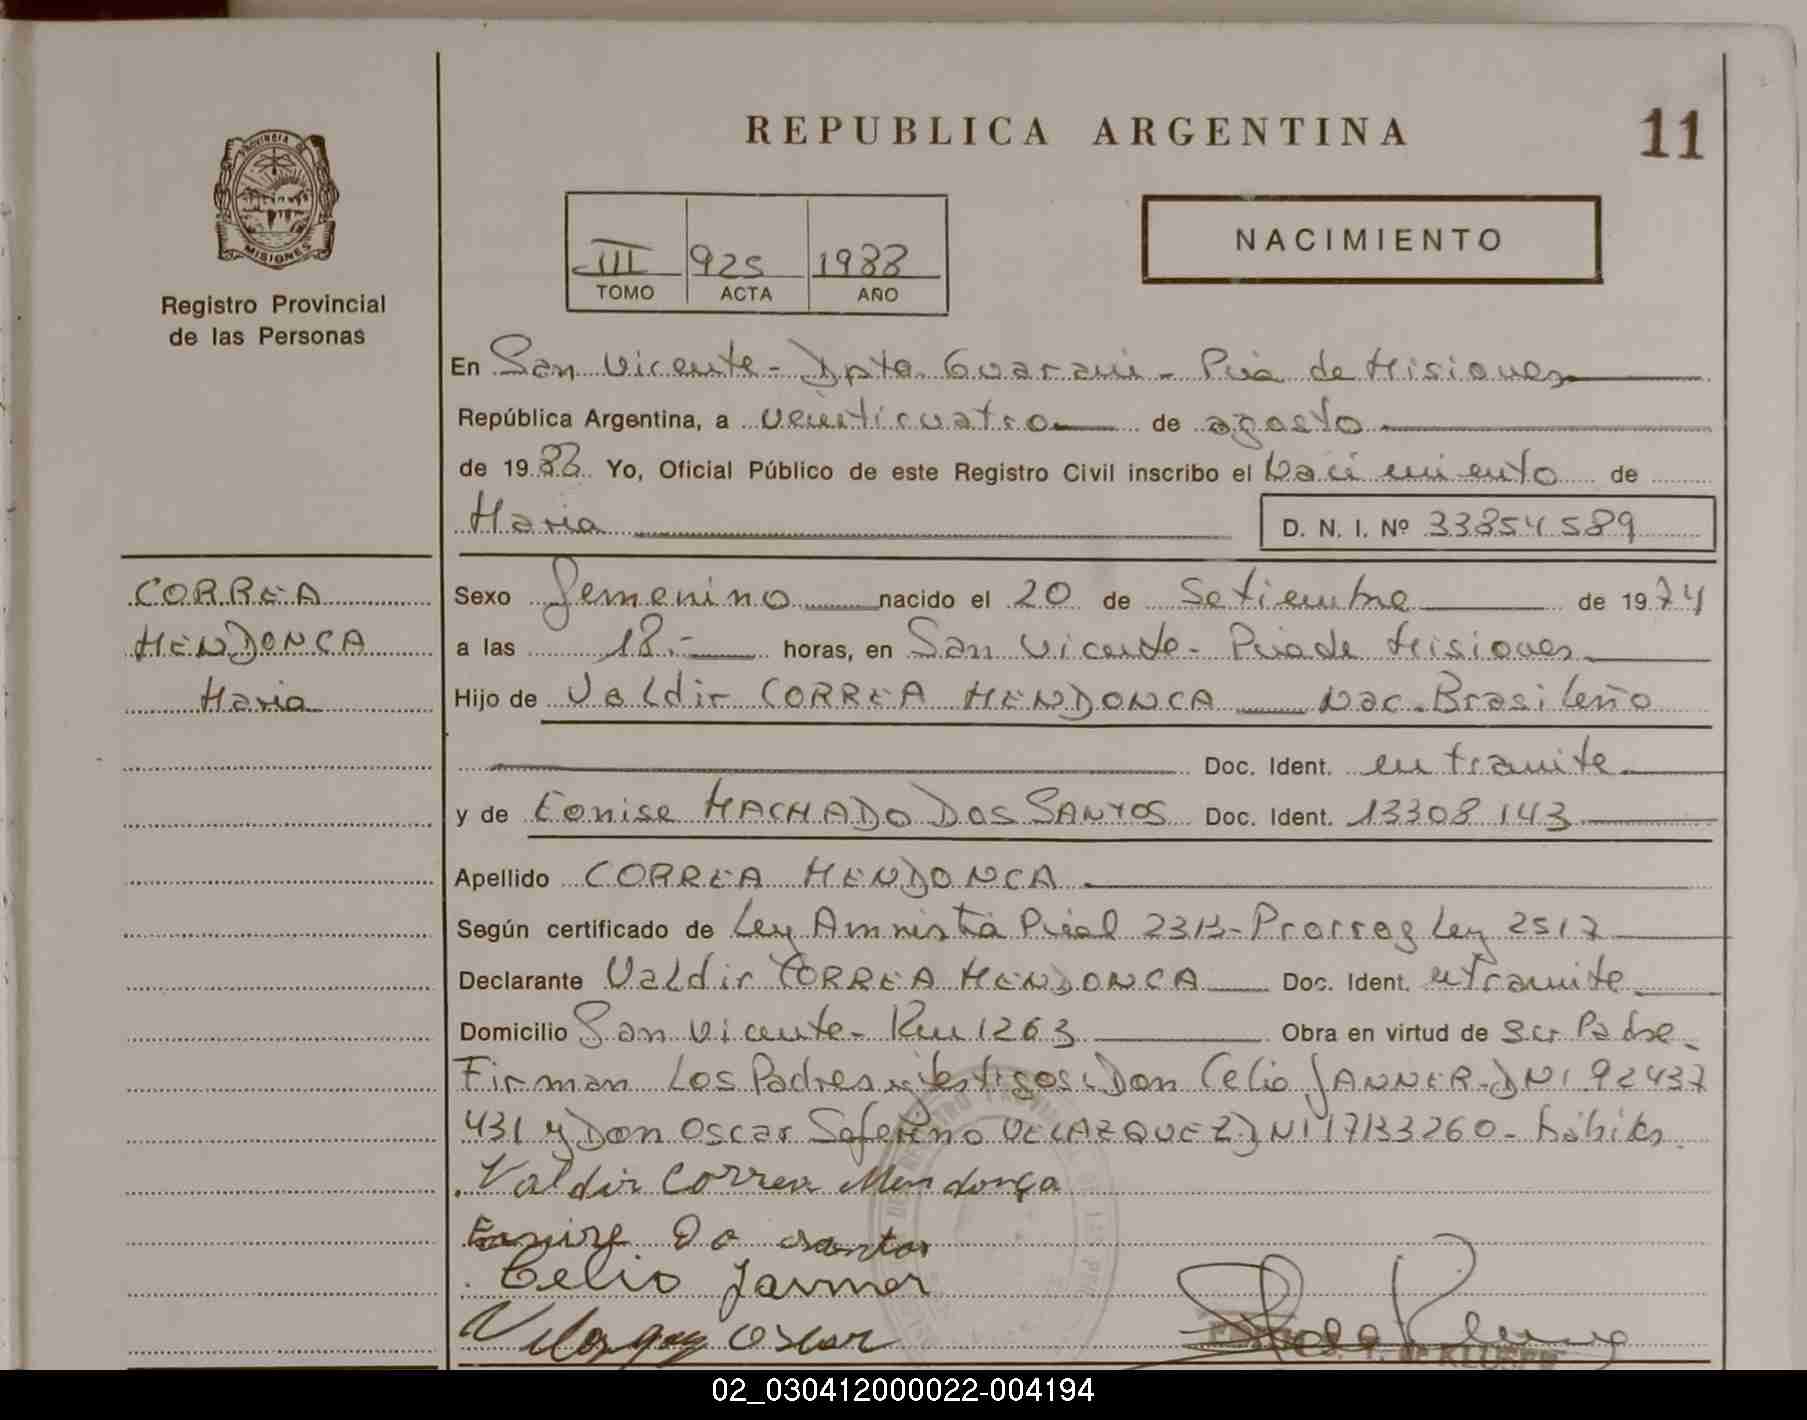 REPUBLICA ARGENTINA
11
PROVINCIA DE
MISIONES
Registro Provincial
de las Personas
III 925 1988
TOMO ACTA AÑO
NACIMIENTO
En San Vicente - Dpto. Guarani - Pcia de Misiones
República Argentina, a veinticuatro de agosto
de 1988 Yo, Oficial Público de este Registro Civil inscribo el Nacimiento de
Maria D. N. I. Nº 33854589
CORREA
MENDONCA
Maria
Sexo femenino nacido el 20 de Setiembre de 1974
a las 18.- horas, en San Vicente - Pcia de Misiones
Hijo de Valdir CORREA MENDONCA Nac. Brasileño
Doc. Ident. en tramite
y de Eonise MACHADO DOS SANTOS Doc. Ident. 13308143
Apellido CORREA MENDONCA
Según certificado de Ley Amnistia Pcial 2313 - Prorrog Ley 2517
Declarante Valdir CORREA MENDONCA Doc. Ident. e/tramite
Domicilio San Vicente - Km 1263 Obra en virtud de ser Padre -
Firman Los Padres y testigos: Don Celio JANNER - DNI 92437
431 y Don Oscar Seferino VELAZQUEZ DNI 17133260 - hábiles.
Valdir Correa Mendonça
Do santos
Celio Janner
Velazquez Oscar
DE KLUSEN
02_030412000022-004194